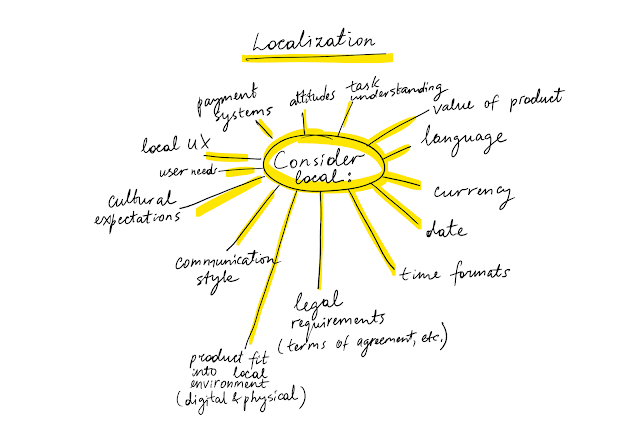 Localization
payment
systems
attitudes
task
understanding
value of product
language
currency
date
time formats
legal
requirements
(terms of agreement, etc.)
product fit
into local
environment
(digital & physical)
communication
style
cultural
expectations
user needs
local UX
Consider
local: